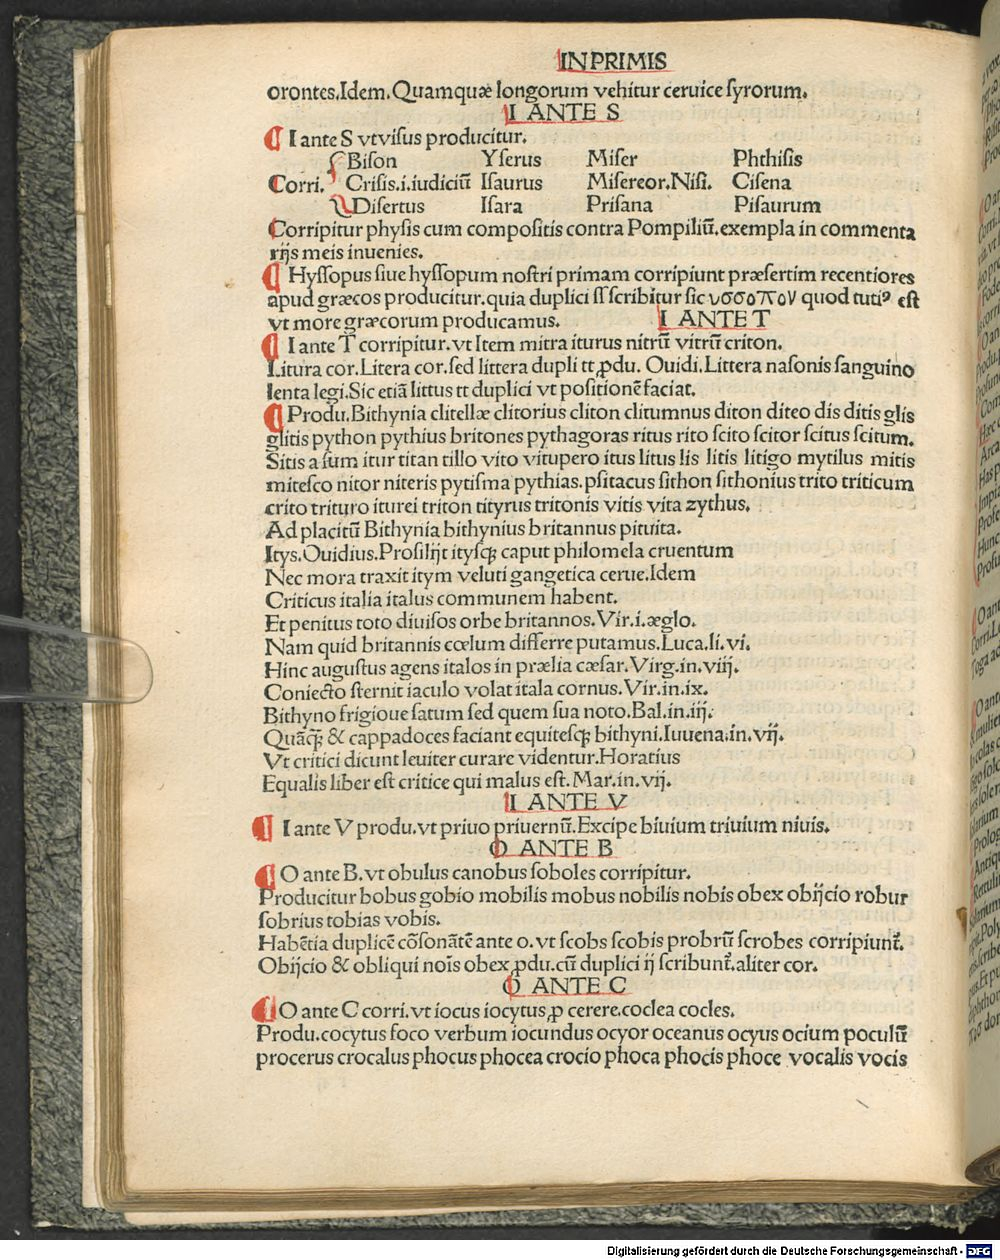 INPRIMIS
orontes.Idem.Quamquæ longorum vehitur ceruice ſyrorum.
I ANTE S
I ante S vt viſus producitur.
Biſon Yſerus Miſer Phthiſis
Corri. Criſis.i.iudiciū Iſaurus Miſereor.Niſi. Ciſena
Diſertus Iſara Priſana Piſaurum
Corripitur phyſis cum compoſitis contra Pompiliū.exempla in commenta
rijs meis inuenies.
Hyſſopus ſiue hyſſopum noſtri primam corripiunt præſertim recentiores
apud græcos producitur.quia duplici ſſ ſcribitur ſic υσσοπου quod tutiꝰ eſt
vt more græcorum producamus.
I ANTE T
I ante T corripitur.vt Item mitra iturus nitrū vitrū criton.
Litura cor.Litera cor.ſed littera dupli tt ꝓdu. Ouidi.Littera naſonis ſanguino
lenta legi.Sic etiā littus tt duplici vt poſitionē faciat.
Produ.Bithynia clitellæ clitorius cliton clitumnus diton diteo dis ditis glis
glitis python pythius britones pythagoras ritus rito ſcito ſcitor ſcitus ſcitum.
Sitis a ſum itur titan tillo vito vitupero itus litus lis litis litigo mytilus mitis
miteſco nitor niteris pytiſma pythias.pſitacus ſithon ſithonius trito triticum
crito trituro iturei triton tityrus tritonis vitis vita zythus.
Ad placitū Bithynia bithynius britannus pituita.
Itys.Ouidius.Proſilijt ityſqꝫ caput philomela cruentum
Nec mora traxit itym veluti gangetica cerue.Idem
Criticus italia italus communem habent.
Et penitus toto diuiſos orbe britannos.Vir.i.æglo.
Nam quid britannis cœlum differre putamus.Luca.li.vi.
Hinc auguſtus agens italos in prælia cæſar.Virg.in.viij.
Coniecto ſternit iaculo volat itala cornus.Vir.in.ix.
Bithyno frigioue ſatum ſed quem ſua noto.Bal.in.iij.
Quāqꝫ & cappadoces faciant equiteſqꝫ bithyni.Iuuena.in.vij.
Vt critici dicunt leuiter curare videntur.Horatius
Equalis liber eſt critice qui malus eſt.Mar.in.vij.
I ANTE V
I ante V produ.vt priuo priuernū.Excipe biuium triuium niuis.
O ANTE B
O ante B.vt obulus canobus ſoboles corripitur.
Producitur bobus gobio mobilis mobus nobilis nobis obex obijcio robur
ſobrius tobias vobis.
Habētia duplicē cōſonātē ante o.vt ſcobs ſcobis probrū ſcrobes corripiunt᷑.
Obijcio & obliqui nois obex ꝓdu.cū duplici ij ſcribunt᷑.aliter cor.
O ANTE C
O ante C corri.vt iocus iocytus ꝓ cerere.coclea cocles.
Produ.cocytus foco verbum iocundus ocyor oceanus ocyus ocium poculū
procerus crocalus phocus phocea crocio phoca phocis phoce vocalis vocis
Digitalisierung gefördert durch die Deutsche Forschungsgemeinschaft - DFG